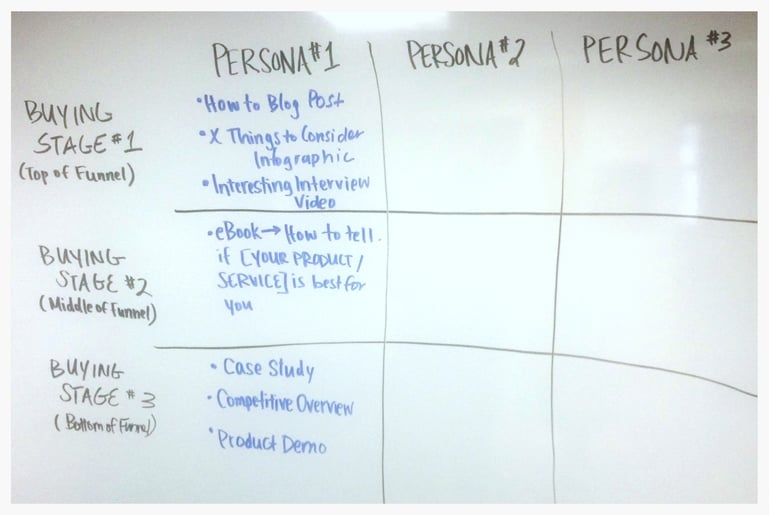 PERSONA #1
PERSONA #2
PERSONA #3
BUYING
STAGE #1
(Top of Funnel)
• How to Blog Post
• X Things to Consider
Infographic
• Interesting Interview
Video
BUYING
STAGE #2
(Middle of Funnel)
• eBook → How to tell
if [YOUR PRODUCT/
SERVICE] is best for
you
BUYING
STAGE #3
(Bottom of Funnel)
• Case Study
• Competitive Overview
• Product Demo